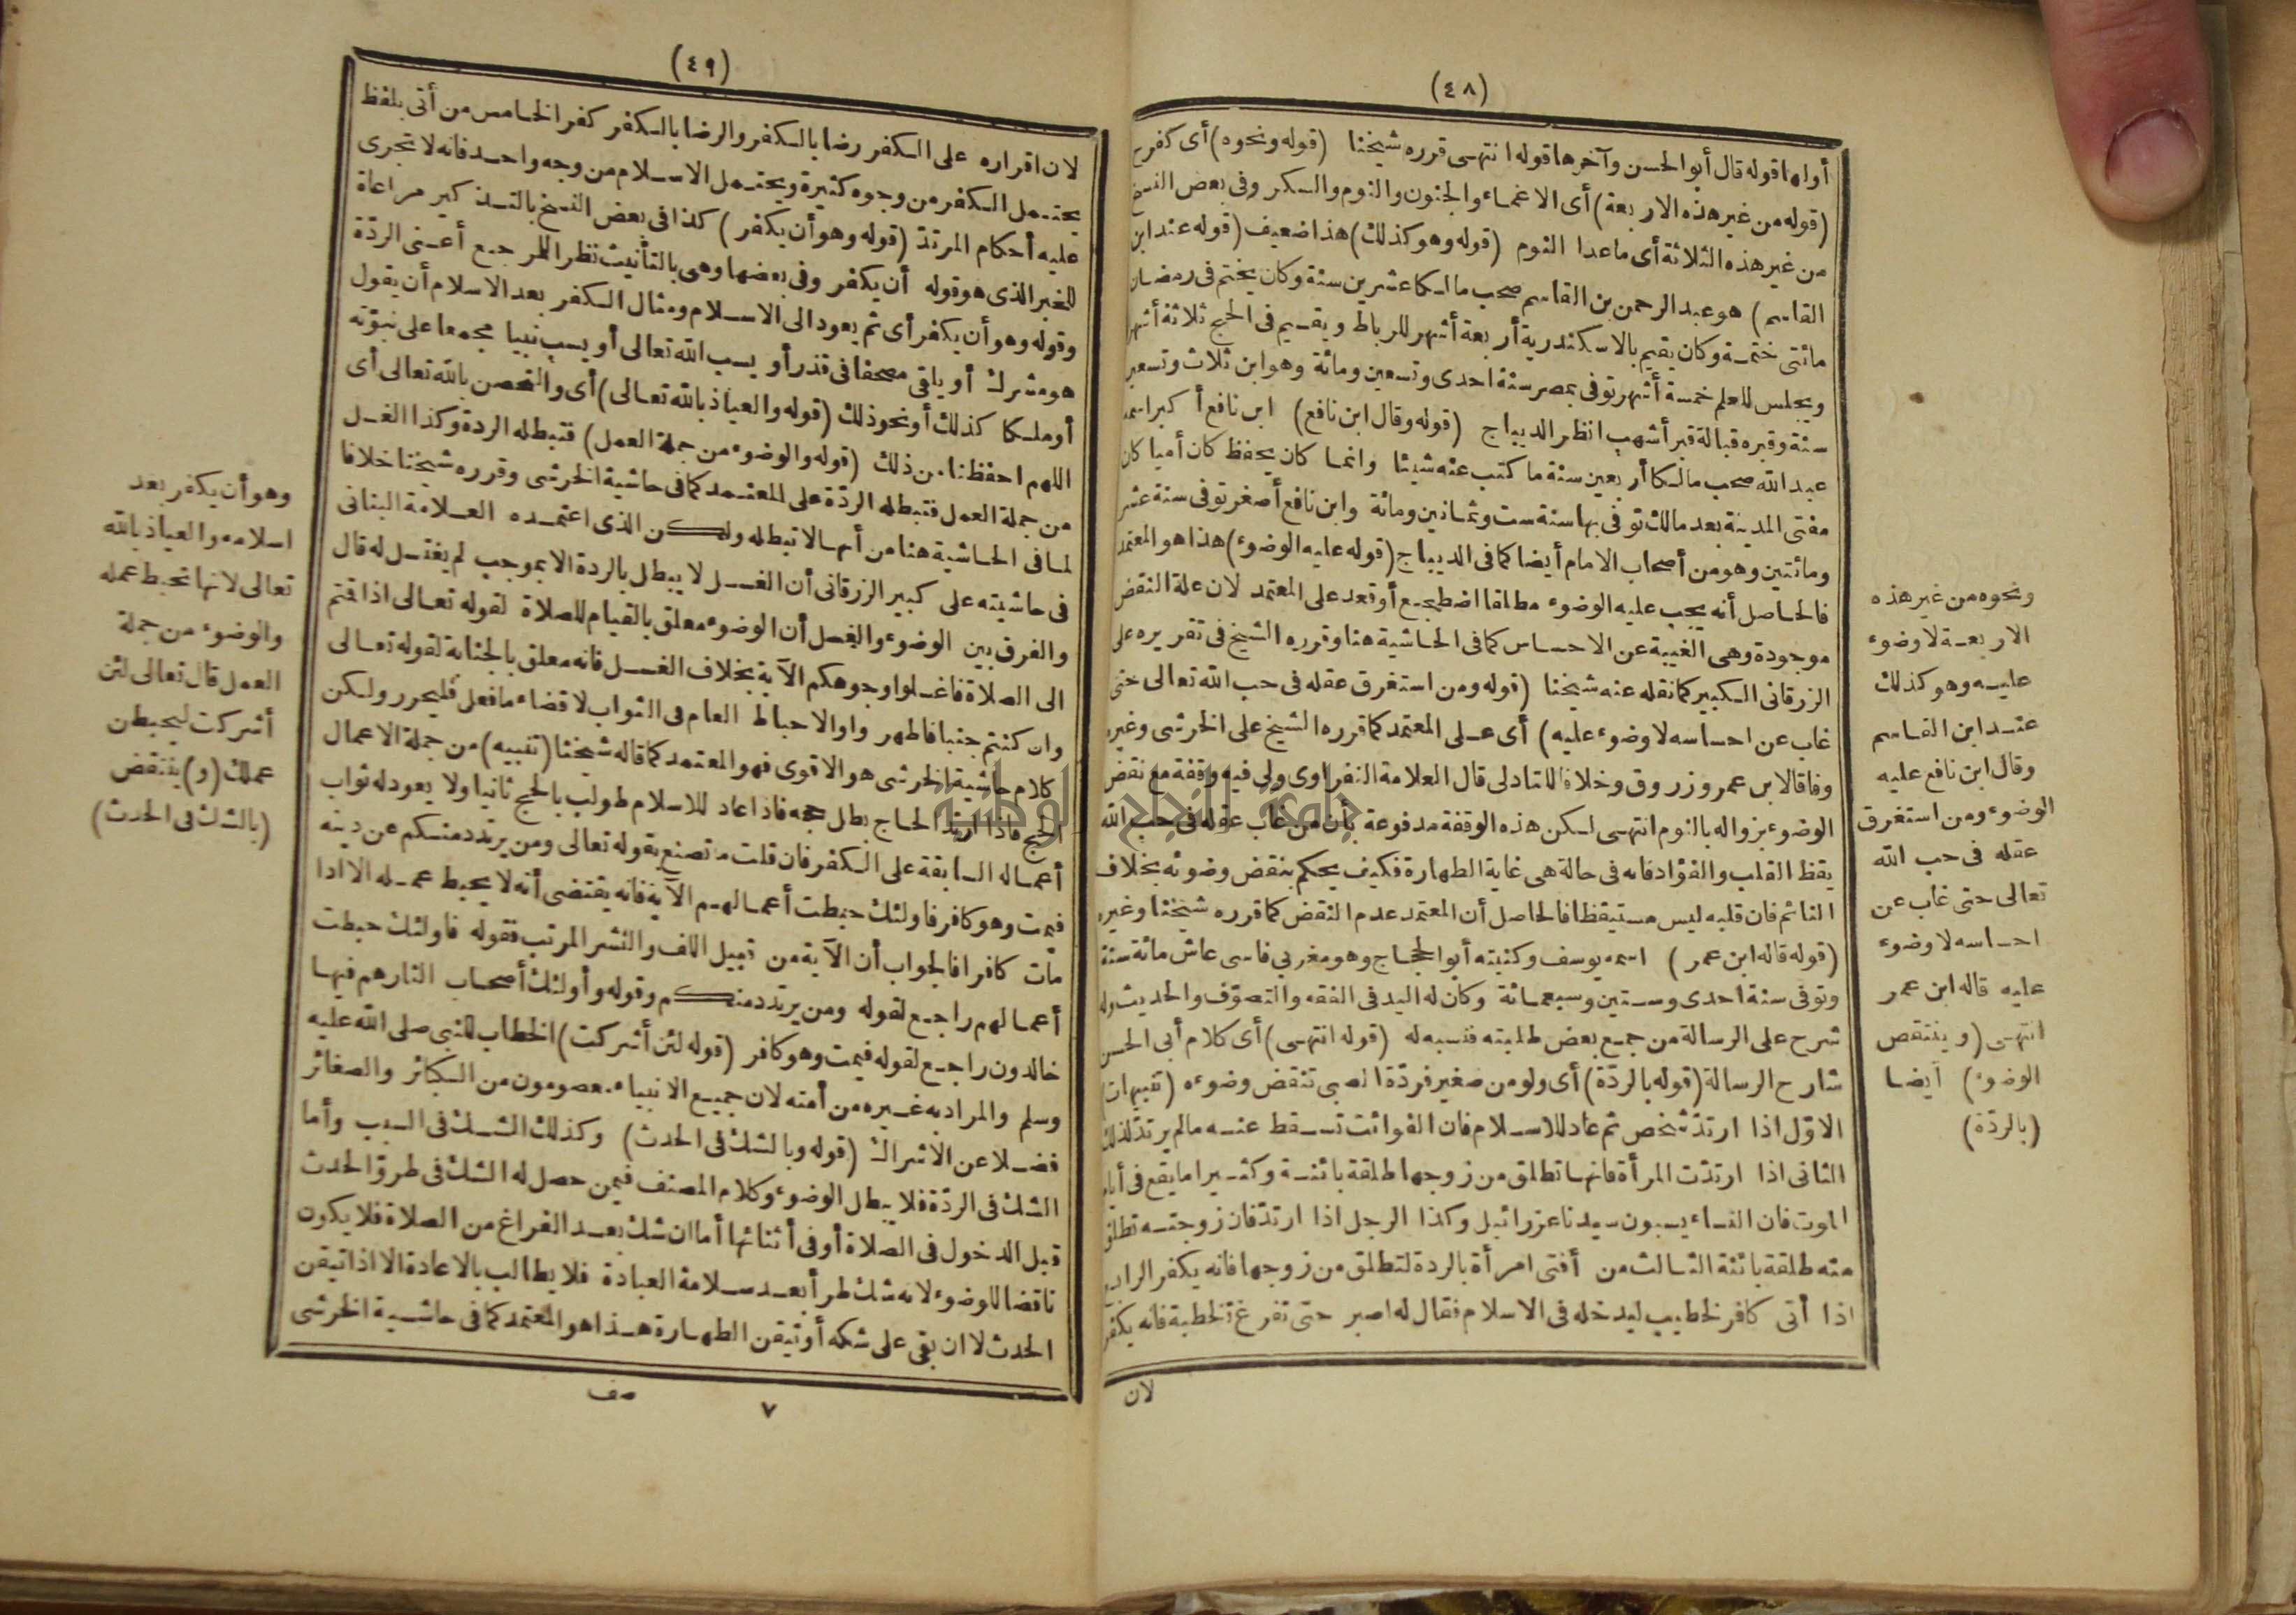 (٤٨)
أولها قوله قال أبو الحسن وآخرها قوله انتهى قرره شيخنا (قوله ونحوه) أى كفرح
(قوله من غير هذه الاربعة) أى الاغماء والجنون والنوم والسكر وفى بعض النسخ
من غير هذه الثلاثة أى ماعدا النوم (قوله وهو كذلك) هذا ضعيف (قوله عند ابن
القاسم) هو عبد الرحمن بن القاسم صحب مالكا عشرين سنة وكان يختم فى رمضان
مائتى ختمة وكان يقيم بالاسكندرية أربعة أشهر للرباط ويقيم فى الحج ثلاثة أشهر
ويجلس للعلم خمسة أشهر توفى بمصر سنة احدى وتسعين ومائة وهو ابن ثلاث وتسعين
سنة وقبره قبالة قبر أشهب انظر الديباج (قوله وقال ابن نافع) ابن نافع أكبر اسمه
عبد الله صحب مالكا أربعين سنة ما كتب عنه شيئا وانما كان يحفظ كان أميا كان
مفتى المدينة بعد مالك توفى بها سنة ست وثمانين ومائة وابن نافع أصغر توفى سنة عشر
ومائتين وهو من أصحاب الامام أيضا كما فى الديباج (قوله عليه الوضوء) هذا هو المعتمد
فالحاصل أنه يجب عليه الوضوء مطلقا اضطجع أو قعد على المعتمد لان علة النقض
موجودة وهى الغيبة عن الاحساس كما فى الحاشية هنا وقرره الشيخ فى تقريره على
الزرقانى الكبير كما نقله عنه شيخنا (قوله ومن استغرق عقله فى حب الله تعالى حتى
غاب عن احساسه لا وضوء عليه) أى على المعتمد كما قرره الشيخ على الخرشى وغيره
وفاقا لابن عمر وزروق وخلافا للتادلى قال العلامة النفراوى ولى فيه وقفة مع نقض
الوضوء بزواله بالنوم انتهى لكن هذه الوقفة مدفوعة بأن من غاب عقله فى حب الله
يقظ القلب والفؤاد فانه فى حالة هى غاية الطهارة فكيف يحكم بنقض وضوئه بخلاف
النائم فان قلبه ليس مستيقظا فالحاصل أن المعتمد عدم النقض كما قرره شيخنا وغيره
(قوله قاله ابن عمر) اسمه يوسف وكنيته أبو الحجاج وهو مغربي فاسى عاش مائة سنة
وتوفى سنة احدى وستين وسبعمائة وكان له اليد فى الفقه والتصوّف والحديث وله
شرح على الرسالة من جمع بعض طلبته فنسبه له (قوله انتهى) أى كلام أبى الحسن
شارح الرسالة (قوله بالردّة) أى ولو من صغير فردّة الصبى تنقض وضوءه (تنبيهات)
الاوّل اذا ارتدّ شخص ثم عاد للاسلام فان الفوائت تسقط عنه مالم يرتد لذلك
الثانى اذا ارتدّت المرأة فانها تطلق من زوجها طلقة بائنة وكثيرا ما يقع فى أيام
الموت فان النساء يسبون سيدنا عزرائيل وكذا الرجل اذا ارتدّ فان زوجته تطلق
منه طلقة بائنة الثالث من أفتى امرأة بالردة لتطلق من زوجها فانه يكفر الرابع
اذا أتى كافر لخطيب ليدخله فى الاسلام فقال له اصبر حتى تفرغ الخطبة فانه يكفر
لان
ونحوه من غير هذه
الاربعة لا وضوء
عليه وهو كذلك
عند ابن القاسم
وقال ابن نافع عليه
الوضوء ومن استغرق
عقله فى حب الله
تعالى حتى غاب عن
احساسه لا وضوء
عليه قاله ابن عمر
انتهى (و ينتقض
الوضوء) أيضا
(بالردّة)
(٤٩)
لان اقراره على الكفر رضا بالكفر والرضا بالكفر كفر الخامس من أتى بلفظ
يحتمل الكفر من وجوه كثيرة ويحتمل الاسلام من وجه واحد فانه لا تجرى
عليه أحكام المرتدّ (قوله وهو أن يكفر) كذا فى بعض النسخ بالتذكير مراعاة
للخبر الذى هو قوله أن يكفر وفى بعضها وهى بالتأنيث نظرا للمرجع أعنى الردّة
وقوله وهو أن يكفر أى ثم يعود الى الاسلام ومثال الكفر بعد الاسلام أن يقول
هو مشرك أو يلقى مصحفا فى قذر أو يسب الله تعالى أو يسب نبيا مجمعا على نبوّته
أو ملكا كذلك أو نحو ذلك (قوله والعياذ بالله تعالى) أى والتحصن بالله تعالى أى
اللهم احفظنا من ذلك (قوله والوضوء من جملة العمل) فتبطله الردة وكذا الغسل
من جملة العمل فتبطله الردّة على المعتمد كما فى حاشية الخرشى وقرره شيخنا خلافا
لما فى الحاشية هنا من أنها لا تبطله ولكن الذى اعتمده العلامة البنانى
فى حاشيته على كبير الزرقانى أن الغسل لا يبطل بالردة الا بموجب لم يغتسل له قال
والفرق بين الوضوء والغسل أن الوضوء معلق بالقيام للصلاة لقوله تعالى اذا قمتم
الى الصلاة فاغسلوا وجوهكم الآية بخلاف الغسل فانه معلق بالجنابة لقوله تعالى
وان كنتم جنبا فاطهروا والاحباط العام فى الثواب لا قضاء ما فعل فليحرر ولكن
كلام حاشية الخرشى هو الاقوى فهو المعتمد كما قاله شيخنا (تنبيه) من جملة الاعمال
الحج فاذا ارتدّ الحاج بطل حجه فاذا عاد للاسلام طولب بالحج ثانيا ولا يعود له ثواب
أعماله السابقة على الكفر فان قلت ما تصنع بقوله تعالى ومن يرتدد منكم عن دينه
فيمت وهو كافر فاولئك حبطت أعمالهم الآية فانه يقتضى أنه لا يحبط عمله الا اذا
مات كافرا فالجواب أن الآية من قبيل اللف والنشر المرتب فقوله فاولئك حبطت
أعمالهم راجع لقوله ومن يرتدد منكم وقوله وأولئك أصحاب النار هم فيها
خالدون راجع لقوله فيمت وهو كافر (قوله لئن أشركت) الخطاب للنبى صلى الله عليه
وسلم والمراد به غيره من أمته لان جميع الانبياء معصومون من الكبائر والصغائر
فضلا عن الاشراك (قوله وبالشك فى الحدث) وكذلك الشك فى السبب وأما
الشك فى الردّة فلا يبطل الوضوء وكلام المصنف فيمن حصل له الشك فى طروّ الحدث
قبل الدخول فى الصلاة أو فى أثنائها أما ان شك بعد الفراغ من الصلاة فلا يكون
ناقضا للوضوء لانه شك طرأ بعد سلامة العبادة فلا يطالب بالاعادة الا اذا تيقن
الحدث لا ان بقى على شكه أو تيقن الطهارة هذا هو المعتمد كما فى حاشية الخرشى
٧ صف
وهو أن يكفر بعد
اسلامه والعياذ بالله
تعالى لانها تحبط عمله
والوضوء من جملة
العمل قال تعالى لئن
أشركت ليحبطن
عملك (و) ينتقض
(بالشك فى الحدث)
جامعة النجاح الوطنية